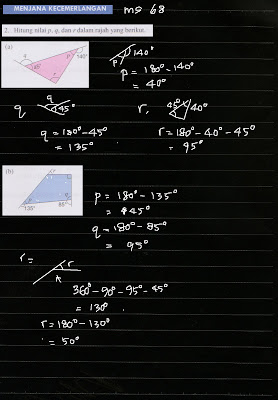 MENJANA KECEMERLANGAN
ms 68
2. Hitung nilai p, q, dan r dalam rajah yang berikut.
(a)
q
45°
p
140°
r
p 140°
p = 180° - 140°
= 40°
q
q 45°
q = 180° - 45°
= 135°
r,
45° 40°
r = 180° - 40° - 45°
= 95°
(b)
r
p
q
135°
85°
p = 180° - 135°
= 45°
q = 180° - 85°
= 95°
r =
r
360° - 90° - 95° - 45°
= 130°
r = 180° - 130°
= 50°